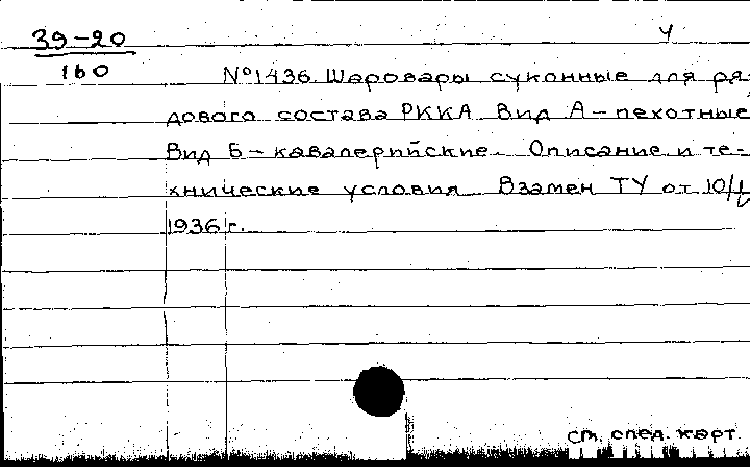 39-20
160
У
№1436. Шаровары суконные для ря-
дового состава РККА Вид А - пехотные
Вид Б - кавалерийские. Описание и те-
хнические условия Взамен ТУ от 10/
1936 г.
ст. спец. карт.